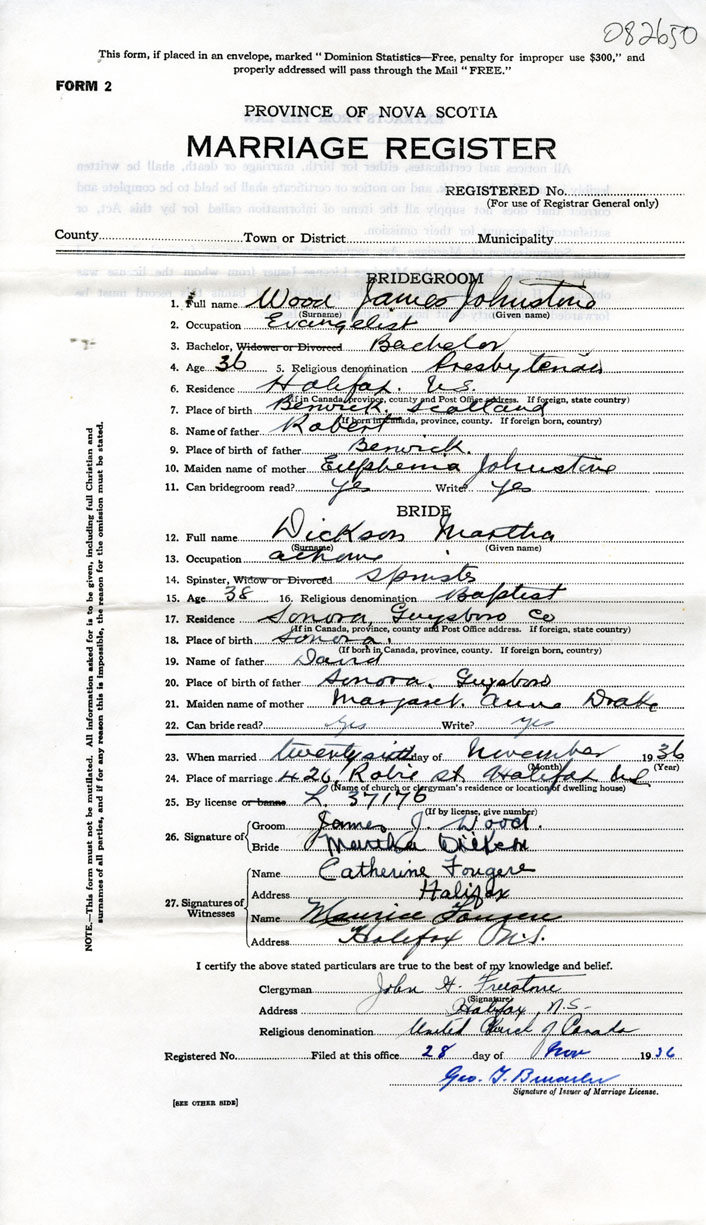 082650
This form, if placed in an envelope, marked "Dominion Statistics—Free, penalty for improper use $300," and
properly addressed will pass through the Mail "FREE."
FORM 2
PROVINCE OF NOVA SCOTIA
MARRIAGE REGISTER
REGISTERED No.
(For use of Registrar General only)
County Town or District Municipality
BRIDEGROOM
1. Full name Wood James Johnstone
(Surname) (Given name)
2. Occupation Evangelist
3. Bachelor, Widower or Divorced Bachelor
4. Age 36 5. Religious denomination Presbyterian
6. Residence Halifax. N.S.
(If in Canada, province, county and Post Office address. If foreign, state country)
7. Place of birth Berwick, Scotland
(If born in Canada, province, county. If foreign born, country)
8. Name of father Robert
9. Place of birth of father Berwick.
10. Maiden name of mother Eulphemia Johnstone
11. Can bridegroom read? yes Write? yes
BRIDE
12. Full name Dickson Martha
(Surname) (Given name)
13. Occupation at home
14. Spinster, Widow or Divorced Spinster
15. Age 38 16. Religious denomination Baptist
17. Residence Sonora, Guysboro Co
(If in Canada, province, county and Post Office address. If foreign, state country)
18. Place of birth Sonora.
(If born in Canada, province, county. If foreign born, country)
19. Name of father David
20. Place of birth of father Sonora, Guysboro
21. Maiden name of mother Margaret Anne Drake
22. Can bride read? Yes Write? yes
23. When married twenty sixth day of November 1936
(Month) (Year)
24. Place of marriage 426, Robie St Halifax N.S
(Name of church or clergyman's residence or location of dwelling house)
25. By license or banns L. 37176
(If by license, give number)
26. Signature of Groom James J. Wood.
Bride Martha Dickson
27. Signatures of Witnesses Name Catherine Fougere
Address Halifax
Name Maurice Fougere
Address Halifax N.S.
I certify the above stated particulars are true to the best of my knowledge and belief.
Clergyman John H. Freestone
(Signature)
Address Halifax, N.S.
Religious denomination United Church of Canada
Registered No. Filed at this office 28 day of Nov 1936
Geo. T.
Signature of Issuer of Marriage License.
[SEE OTHER SIDE]
NOTE.—This form must not be mutilated. All information asked for is to be given, including full Christian and
surnames of all parties, and if for any reason this is impossible, the reason for the omission must be stated.